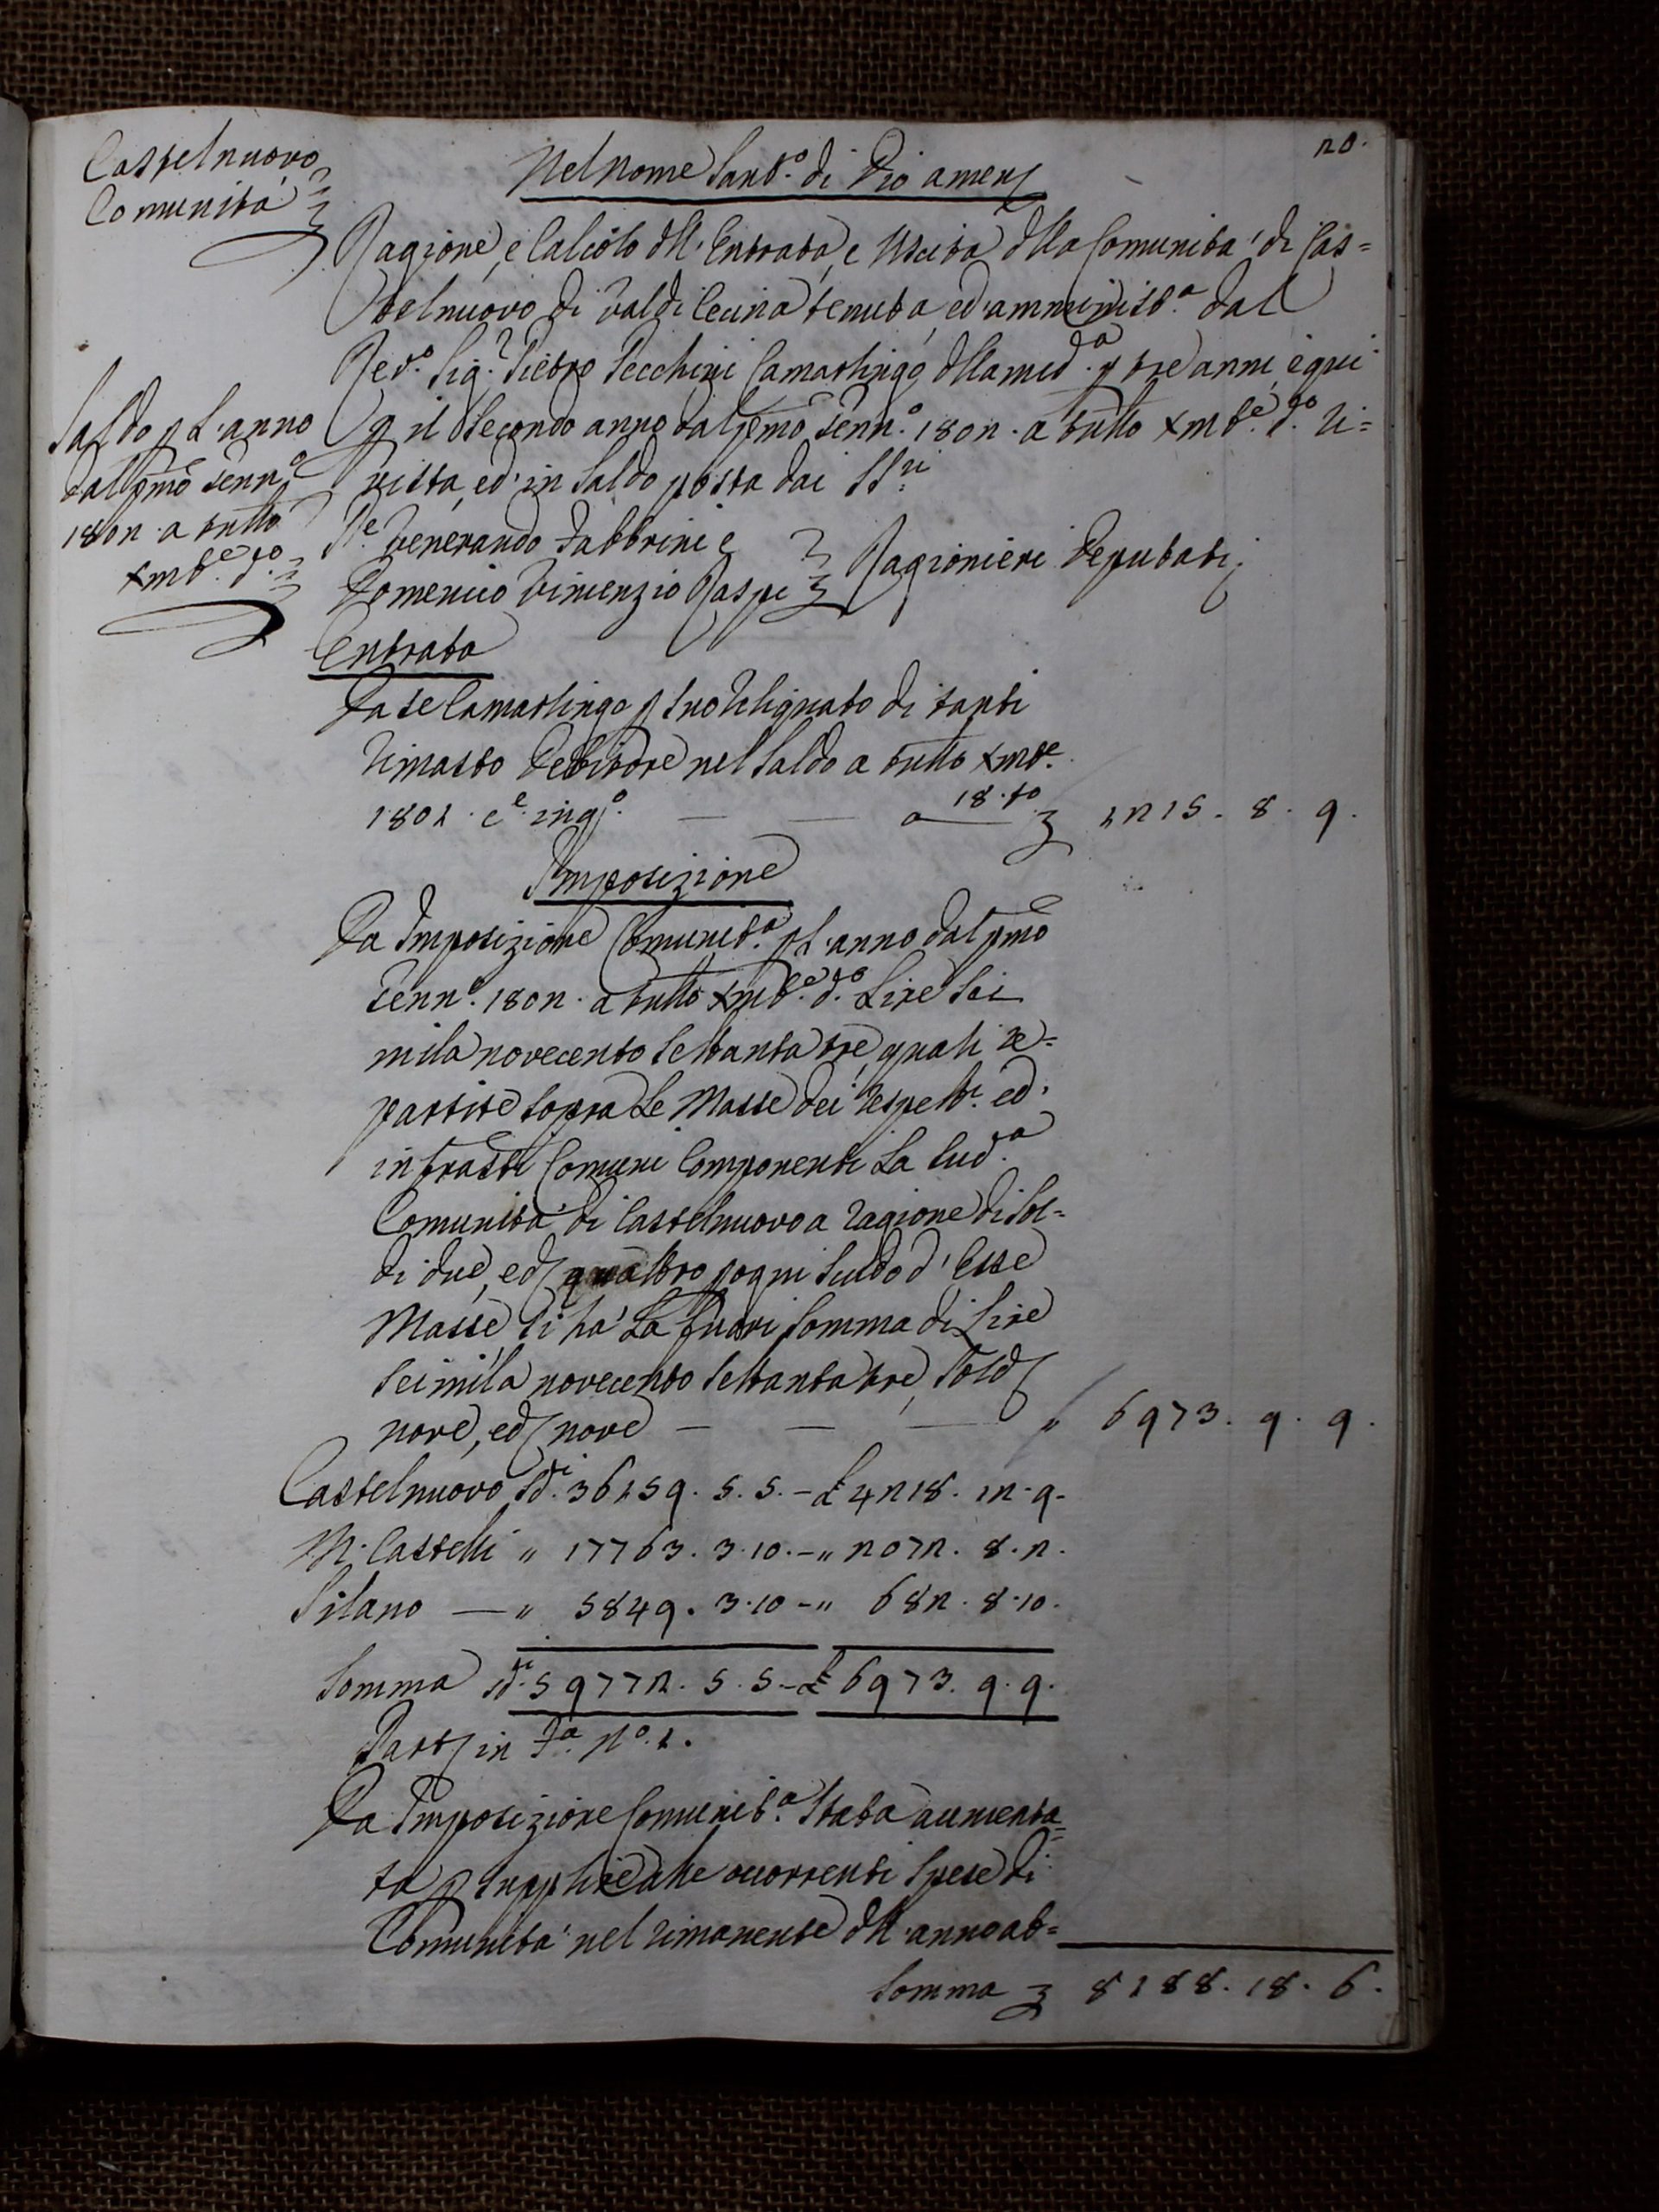 20.
Castelnuovo
Comunità
Nel Nome Sant.º di Dio amen
Ragione, e Calcolo dll'Entrata, e Uscita dlla Comunità di Cas=
telnuovo di Val di Cecina tenuta, ed amminist.ª dal
Sig.r Pietro Secchini Camarlingo dlla med.ª p tre anni, e qui
p il secondo anno dal pmo Genn.º 1802. a tutto Xmb.e d.º ri=
vista, ed in Saldo posta dai SS.ri
Saldo p L'anno
dal pmo Genn.º
1802. a tutto
Xmb.e d.º
P.e Venerando Fabbrini e
Domenico Vincenzio Raspi
Ragionieri Deputati;
Entrata
Da se Camarlingo p suo Resignato di tanti
rimasto Debitore nel Saldo a tutto Xmb.e
1801. c.e in q.º — — a 18. t.º 1215. 8. 9.
Imposizione
Da Imposizione Comunit.ª p L'anno dal pmo
Genn.º 1802. a tutto Xmb.e d.º Lire Sei
mila novecento settanta tre, quali re=
partite sopra Le Masse dei respett.i ed
infratti Comuni Componenti La sud.ª
Comunità di Castelnuovo a ragione di Sol=
di due, ed quattro p ogni Scudo d'Esse
Masse, si ha La fuori Somma di Lire
Seimila novecento settanta tre, Sold
nove, ed nove — — — " 6973. 9. 9.
Castelnuovo Sd.i 36159. 5. 5. - £ 4218. 12. 9.
M. Castelli " 17763. 3. 10. - " 2072. 8. 2.
Silano — " 5849. 3. 10 - " 682. 8. 10.
Somma Sd.i 59772. 5. 5. - £ 6973. 9. 9.
Part in F.ª N.º 1.
Da Imposizione Comunit.ª Stata aumenta=
ta p supplire alle occorrenti Spese di
Comunità nel rimanente dll'anno at=
Somma 8188. 18. 6.